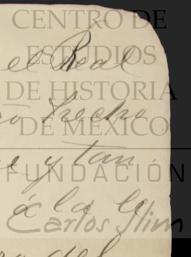 CENTRO DE
ESTUDIOS
el Real
DE HISTORIA
hecho
DE MÉXICO
e y tan
FUNDACIÓN
á la
Carlos Slim
del